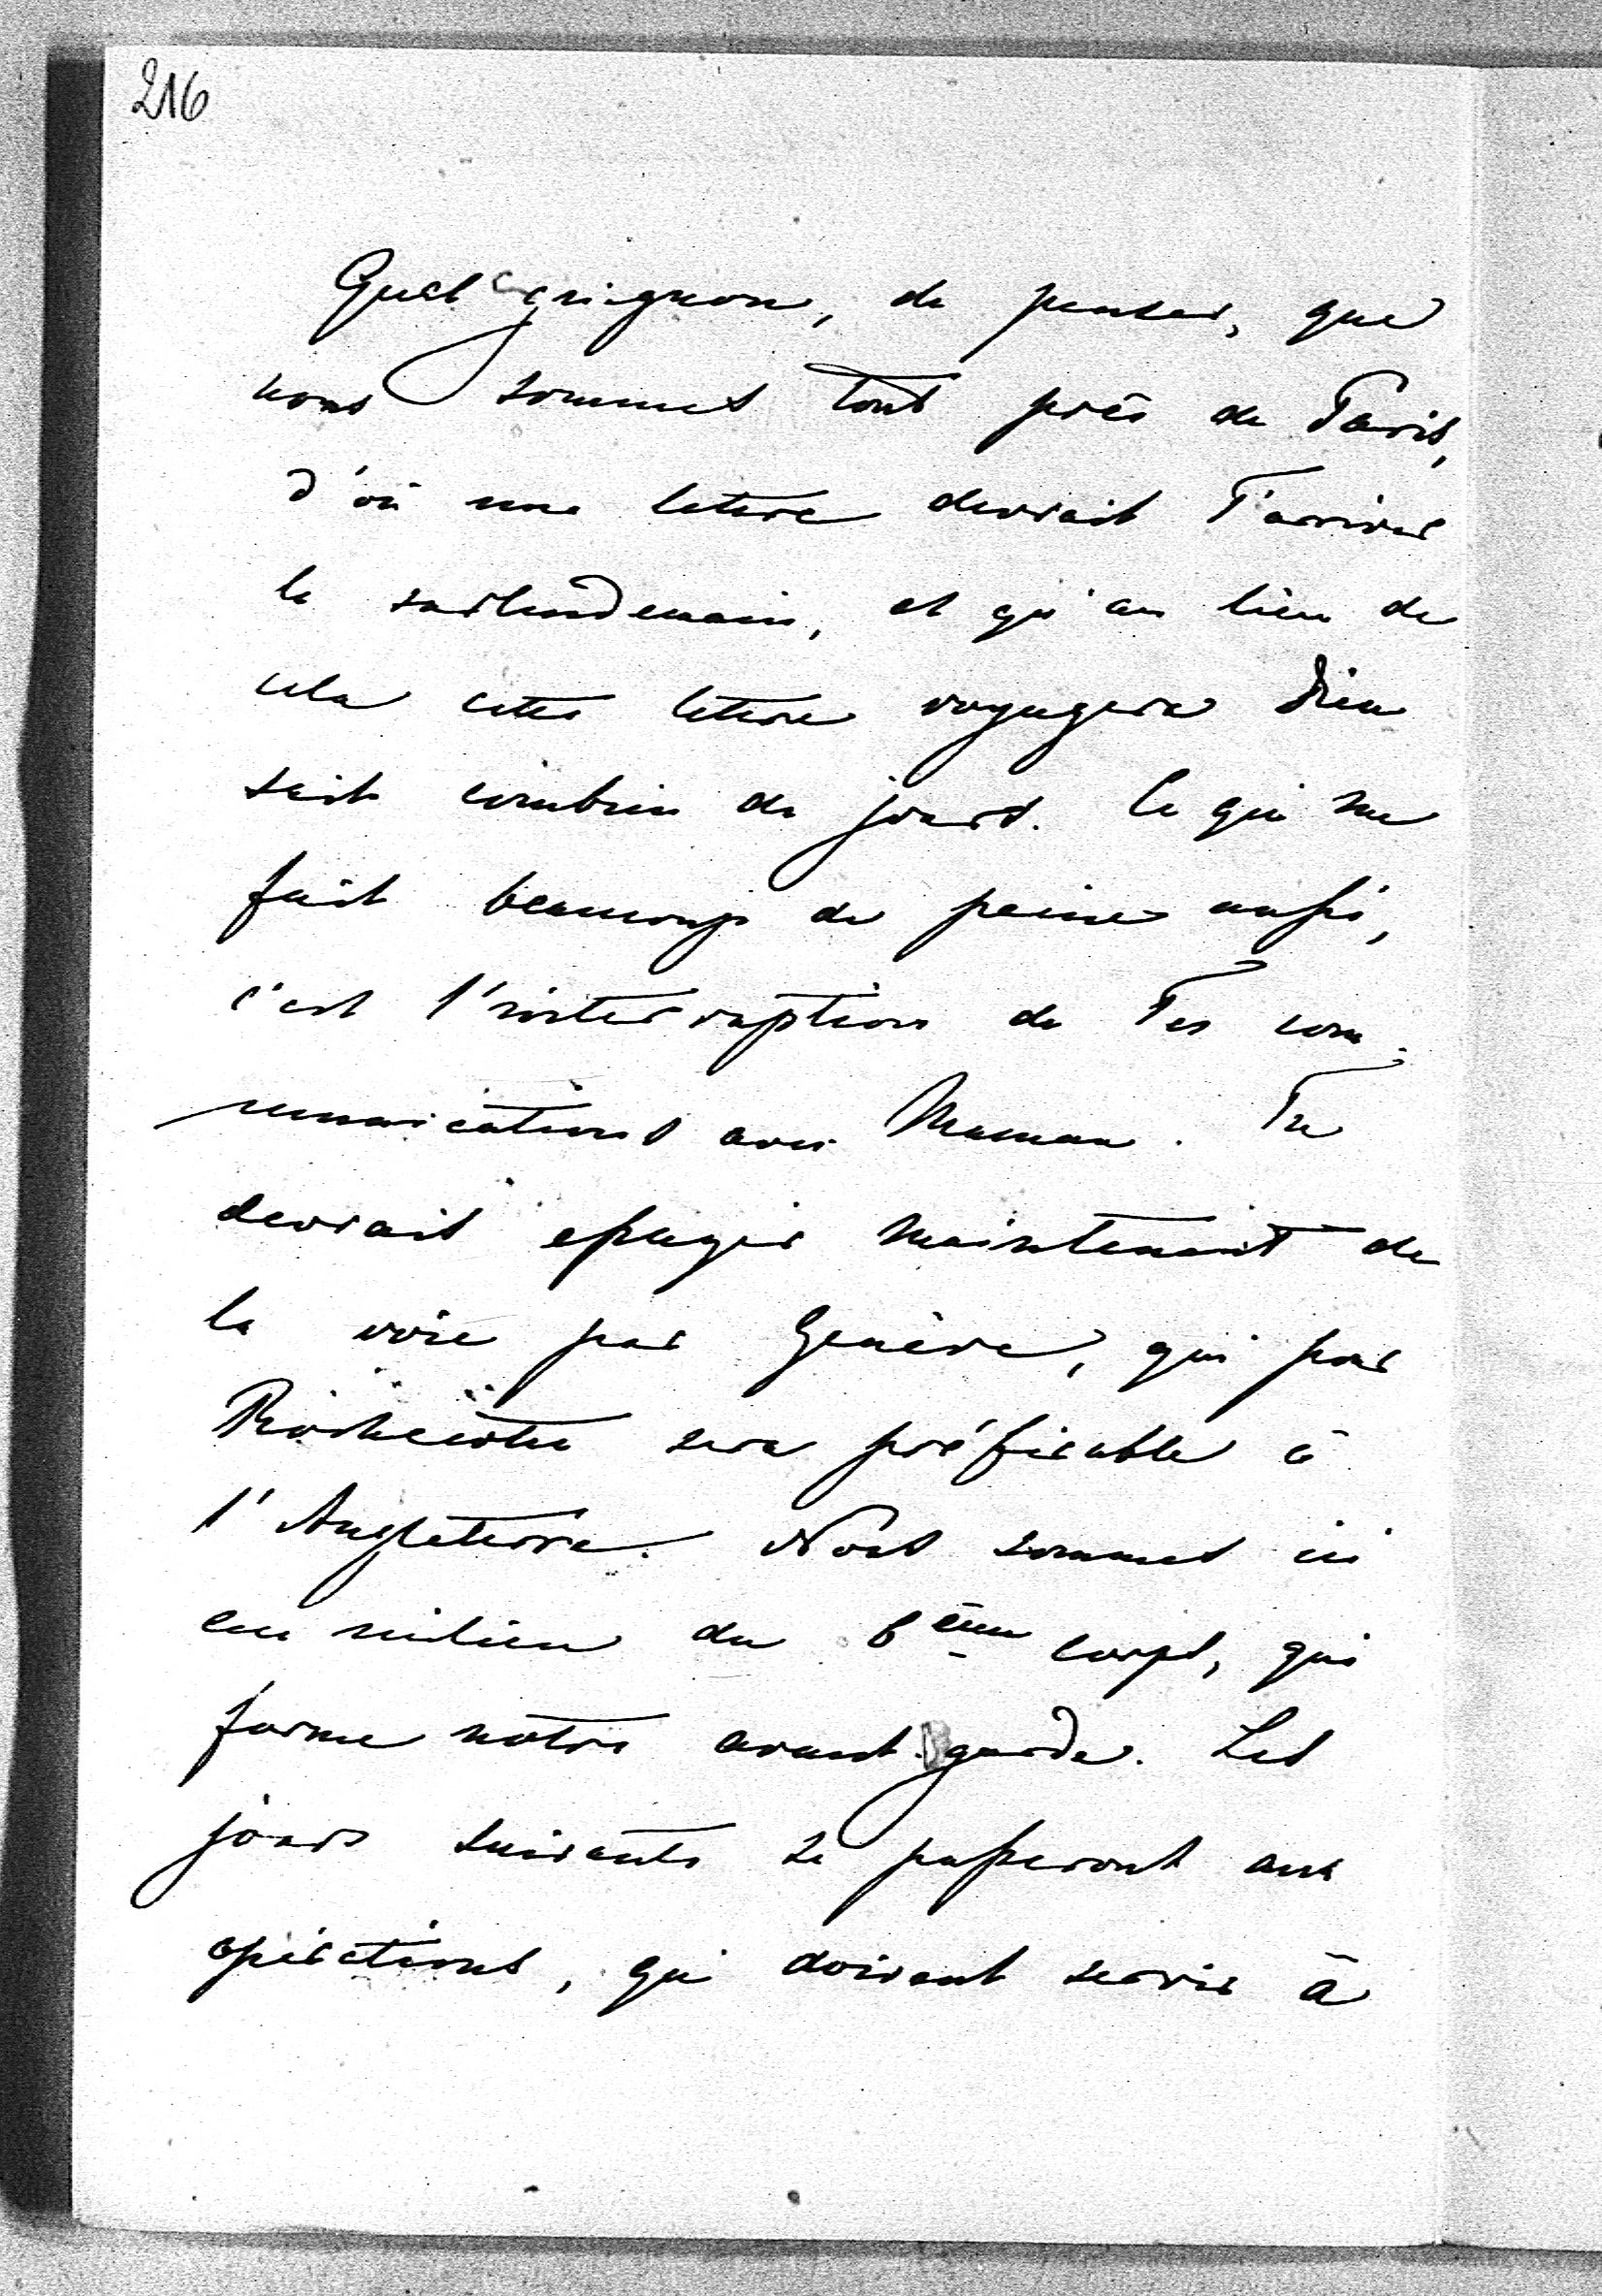 216
Quel guignon, de penser, que
nous sommes tout près de Paris,
d'où une lettre devrait T'arriver
le surlendemain, et qu'au lieu de
cela cette lettre voyagera Dieu
sait combien de jours. Ce qui me
fait beaucoup de peine aussi,
c'est l'interruption de Tes com-
munications avec Maman. Tu
devrait essayer maintenant de
la voie par Genève, qui pour
sera préférable à
l'Angleterre. Nous sommes ici
au milieu du 6ème corps, qui
forme notre avant-garde. Les
jours suivants se passeront aux
opérations, qui doivent servir à